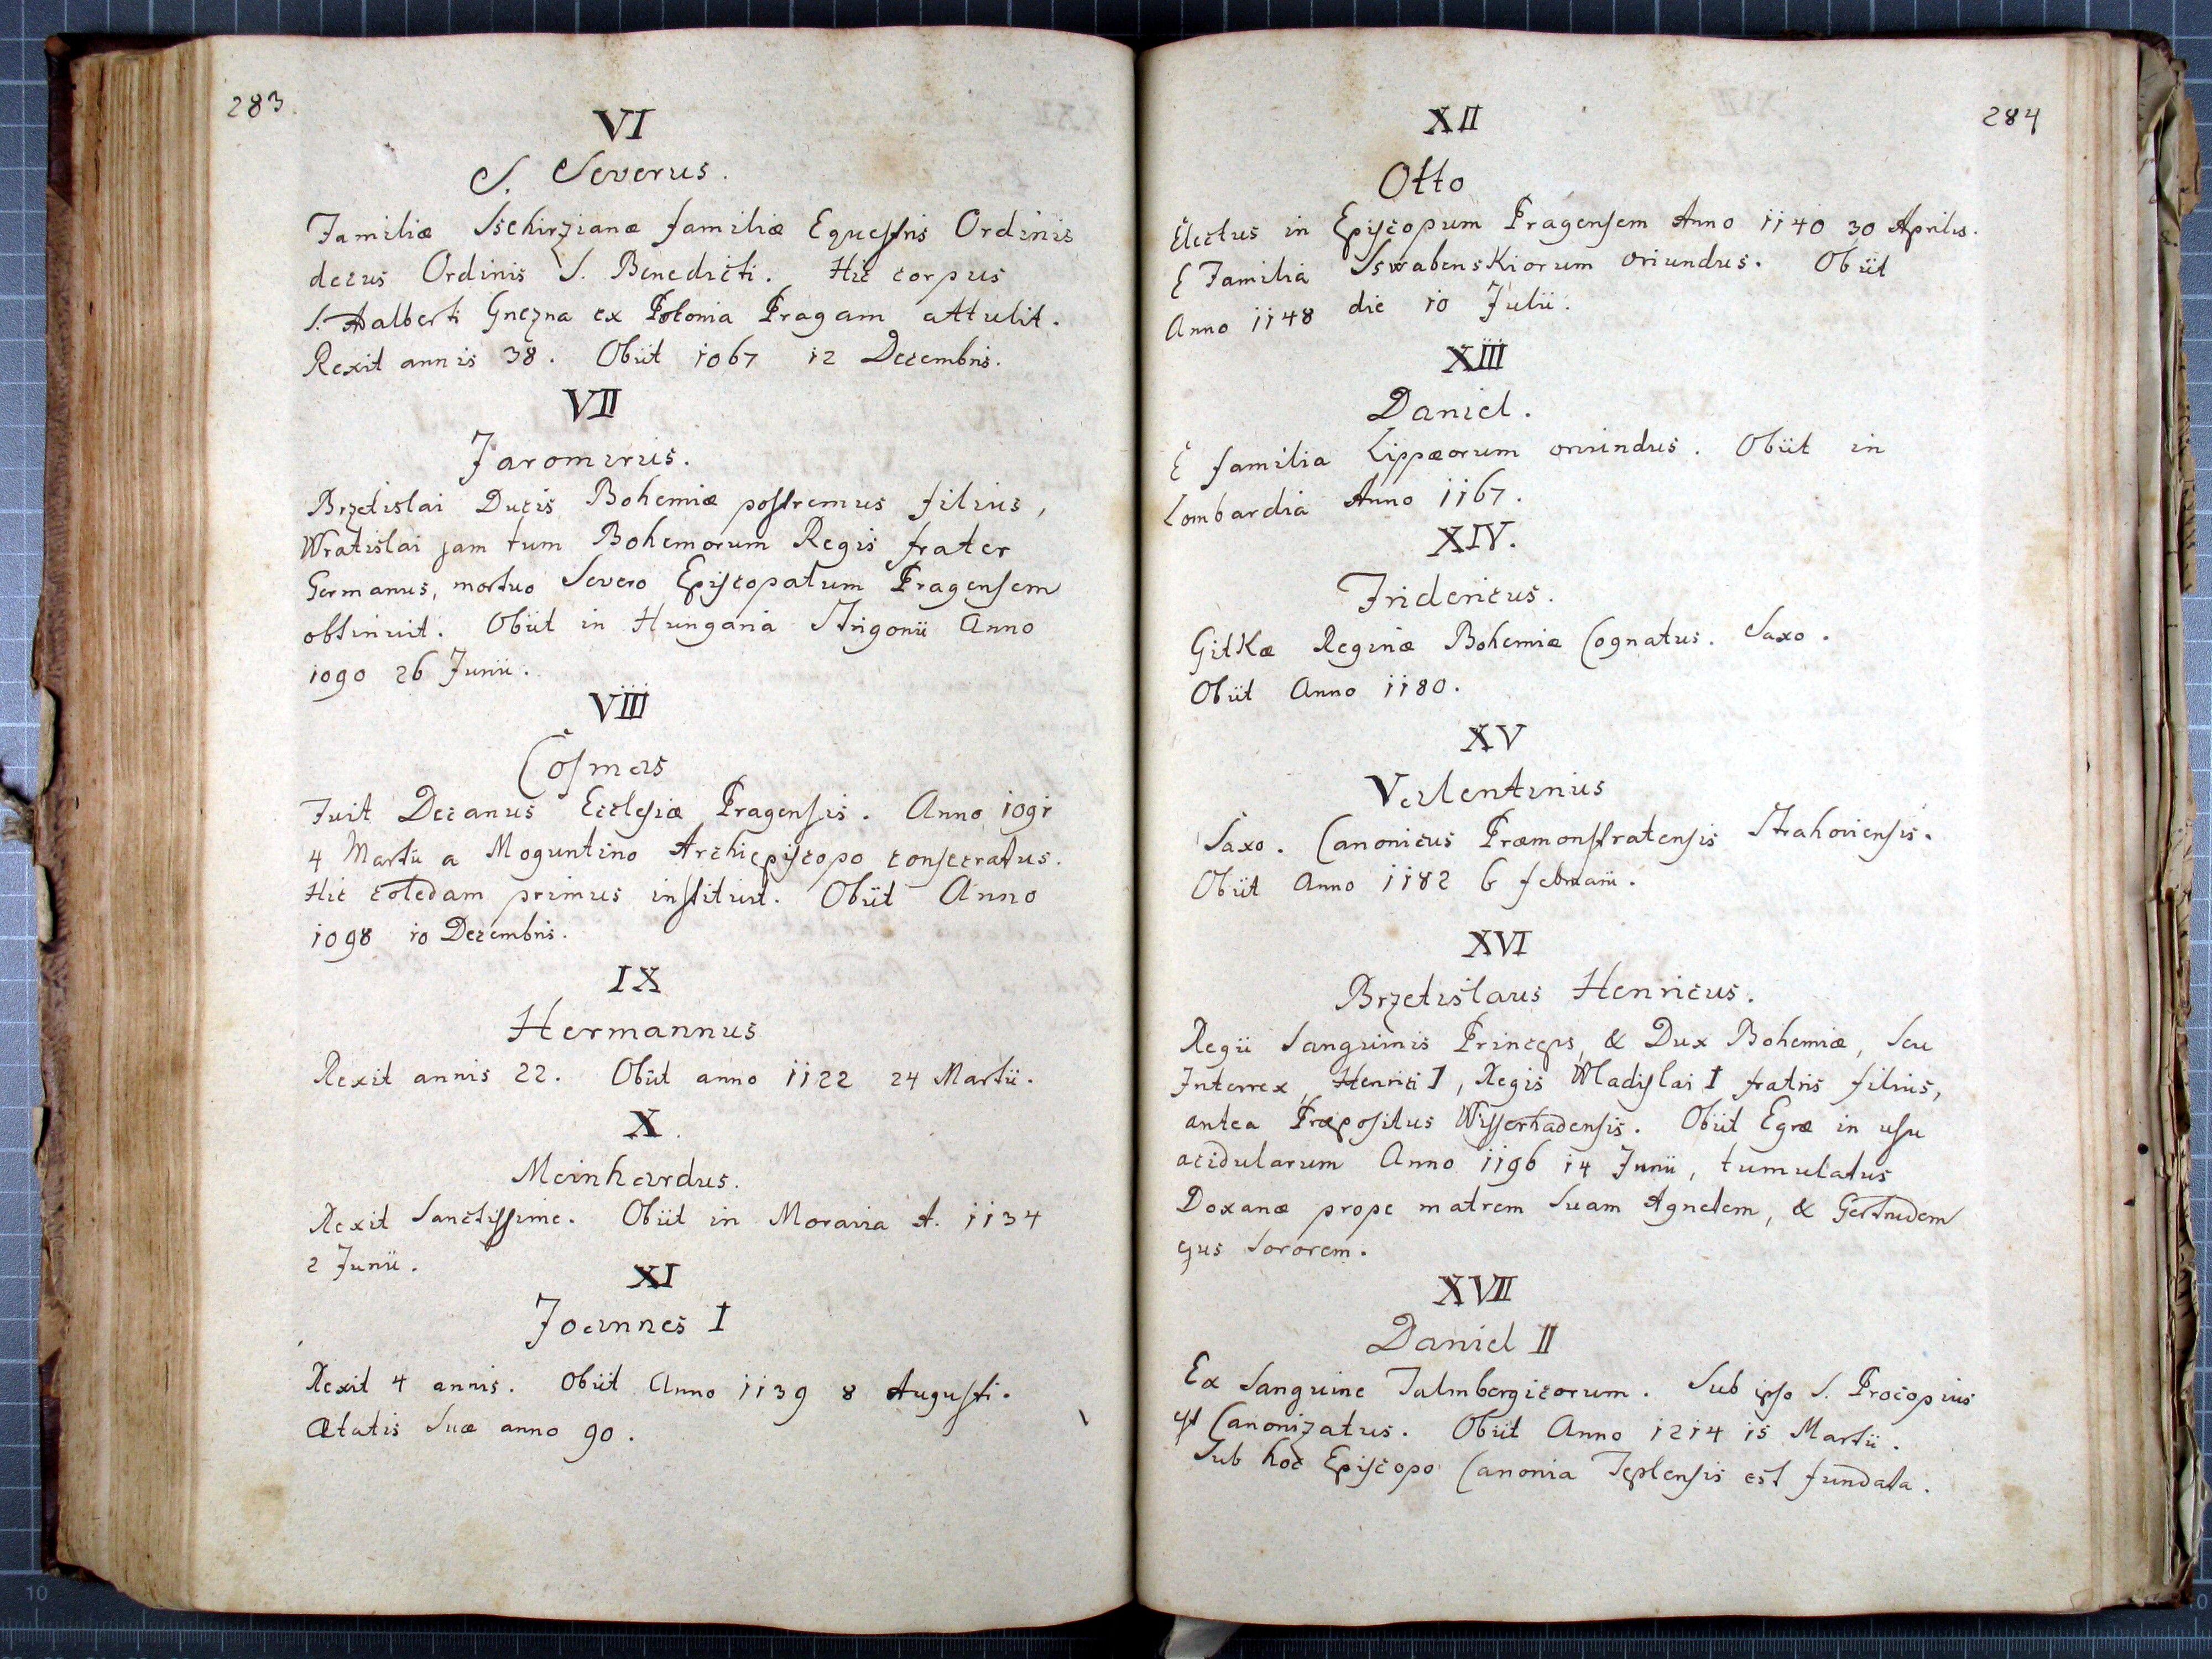 283.
VI
S. Severus.
Familiæ Sschirzianæ familiæ Equestris Ordinis
decus Ordinis S. Benedicti. Hic corpus
S. Aalberti Gnezna ex Polonia Pragam attulit.
Rexit annis 38. Obiit 1067 12 Decembris.
VII
Jaromirus.
Brzetislai Ducis Bohemiæ postremus filius,
Wratislai jam tum Bohemorum Regis frater
Germanus, mortuo Severo Episcopatum Pragensem
obtinuit. Obiit in Hungaria Strigonii Anno
1090 26 Junii.
VIII
Cosmas
Fuit Decanus Ecclesiæ Pragensis. Anno 1091
4 Martii a Moguntino Archiepiscopo consecratus.
Hic coledam primus instituit. Obiit Anno
1098 10 Decembris.
IX
Hermannus
Rexit annis 22. Obiit anno 1122 24 Martii.
X.
Meinhardus.
Rexit Sanctissime. Obiit in Moravia A. 1134
2 Junii.
XI
Joannes I
Rexit 4 annis. Obiit Anno 1139 8 Augusti.
Ætatis Suæ anno 90.
284
XII
Otto
Electus in Episcopum Pragensem Anno 1140 30 Aprilis.
E Familia SswabensKiorum oriundus. Obiit
Anno 1148 die 10 Julii.
XIII
Daniel.
E familia Lippæorum oriundus. Obiit in
Lombardia Anno 1167.
XIV.
Fridericus.
GitKæ Reginæ Bohemiæ Cognatus. Saxo.
Obiit Anno 1180.
XV
Valentinus
Saxo. Canonicus Præmonstratensis Strahoviensis.
Obiit Anno 1182 6 februarii.
XVI
Brzetislaus Henricus.
Regii Sanguinis Princeps, & Dux Bohemiæ, Seu
Interrex, Henrici I, Regis Wladislai I fratris filius,
antea Præpositus Wisserhadensis. Obiit Egræ in usu
acidularum Anno 1196 14 Junii, tumulatus
Doxanæ prope matrem Suam Agnetem, & Gertrudem
ejus Sororem.
XVII
Daniel II
Ex Sanguine Talmbergicorum. Sub ipso S. Procopius
est Canonizatus. Obiit Anno 1214 15 Martii.
Sub hoc Episcopo Canonia Teplensis est fundata.